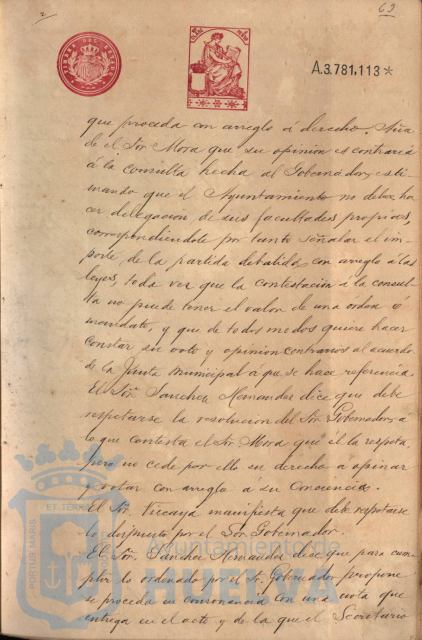 2
62
A.3.781,113*
que proceda con arreglo á derecho. Aña
de el Sor. Mora que su opinion es contraria
á la consulta hecha al Gobernador, esti
mando que el Ayuntamiento no debe ha
cer delegacion de sus facultades propias,
correspondiendole por tanto señalar el im
porte, de la partida debatida, con arreglo á las
leyes, toda vez que la contestacion á la consul
ta no puede tener el valor de una orden ó
mandato, y que de todos modos quiere hacer
constar su voto y opinion contrarios al acuerdo
de la Junta municipal a que se hace referencia.
El Sor. Sanchez Hernandez dice que debe
respetarse la resolucion del Sr. Gobernador, a
lo que contesta el Sr. Mora que él la respeta
pero no cede por ello su derecho a opinar
y votar con arreglo á su Conciencia.
El Sor. Vizcaya manifiesta que debe respetarse
lo dispuesto por el Sor. Gobernador.
El Sor. Sanchez Hernandez dice que para cum
plir lo ordenado por el Sr. Gobernador propone
se proceda en consonancia con una nota que
entrega en el acto y de la que el Secretario
Ayuntamiento de
HUELVA
PORTUS MARIS
ET TERRAE